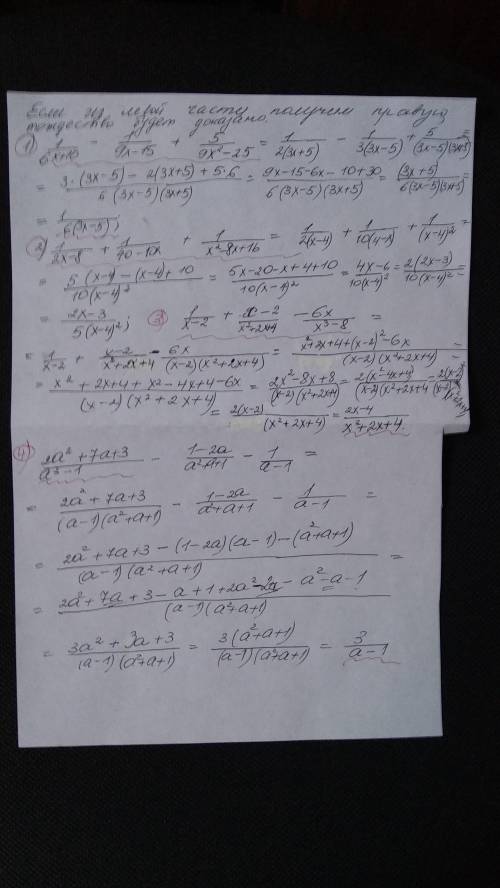 Если из левой части получем правую
тождество будет доказано.
1) 1/(6x+10) - 1/(9x-15) + 5/(9x²-25) = 1/(2(3x+5)) - 1/(3(3x-5)) + 5/((3x-5)(3x+5)) =
= (3·(3x-5) - 2(3x+5) + 5·6)/(6(3x-5)(3x+5)) = (9x-15-6x-10+30)/(6(3x-5)(3x+5)) = (3x+5)/(6(3x-5)(3x+5)) =
= 1/(6(3x-5));
2) 1/(2x-8) + 1/(40-10x) + 1/(x²-8x+16) = 1/(2(x-4)) + 1/(10(4-x)) + 1/(x-4)² =
= (5(x-4)-(x-4)+10)/(10(x-4)²) = (5x-20-x+4+10)/(10(x-4)²) = (4x-6)/(10(x-4)²) = (2(2x-3))/(10(x-4)²) =
= (2x-3)/(5(x-4)²); 3) 1/(x-2) + (x-2)/(x²+2x+4) - 6x/(x³-8) =
= 1/(x-2) + (x-2)/(x²+2x+4) - 6x/((x-2)(x²+2x+4)) = (x²+2x+4+(x-2)²-6x)/((x-2)(x²+2x+4)) =
= (x²+2x+4+x²-4x+4-6x)/((x-2)(x²+2x+4)) = (2x²-8x+8)/((x-2)(x²+2x+4)) = (2(x²-4x+4))/((x-2)(x²+2x+4)) =
= (2(x-2))/(x²+2x+4) = (2x-4)/(x²+2x+4)
4) (2a²+7a+3)/(a³-1) - (1-2a)/(a²+a+1) - 1/(a-1) =
= (2a²+7a+3)/((a-1)(a²+a+1)) - (1-2a)/(a²+a+1) - 1/(a-1) =
= (2a²+7a+3-(1-2a)(a-1)-(a²+a+1))/((a-1)(a²+a+1)) =
= (2a²+7a+3-a+1+2a²-2a-a²-a-1)/((a-1)(a²+a+1))
= (3a²+3a+3)/((a-1)(a²+a+1)) = (3(a²+a+1))/((a-1)(a²+a+1)) = 3/(a-1)